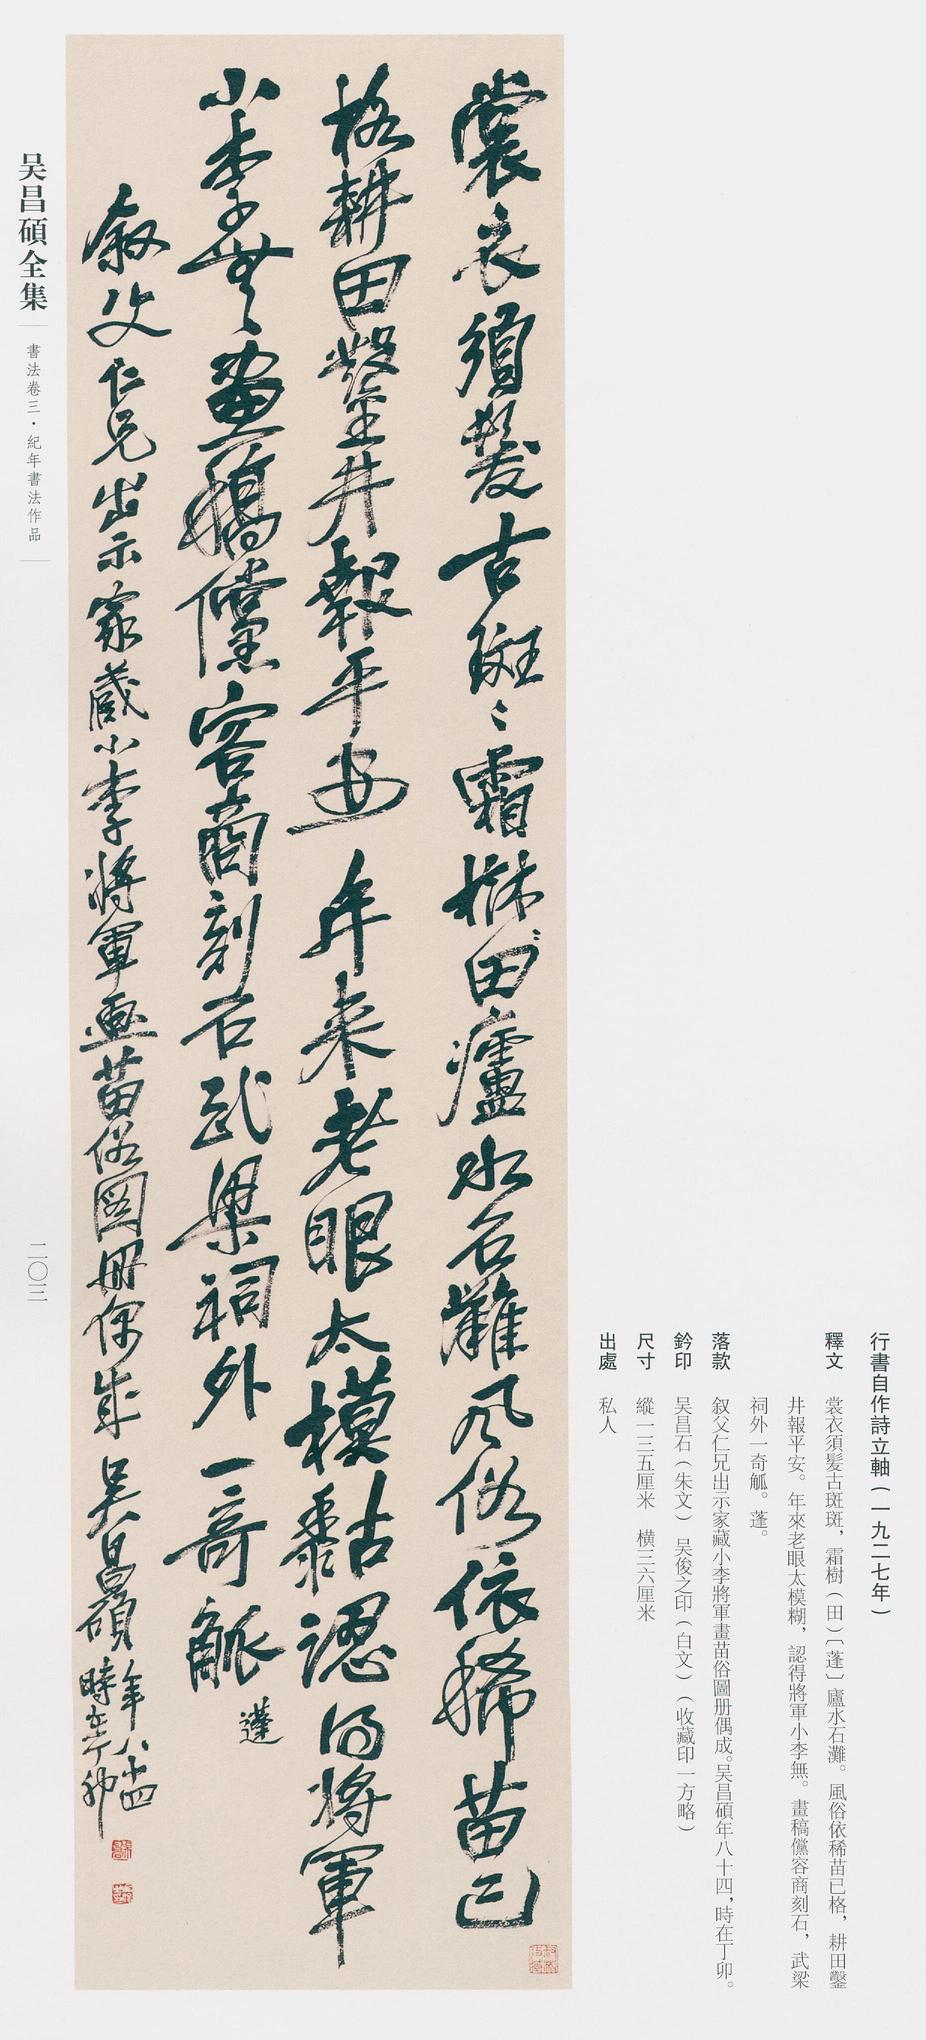 裳衣須髮古斑〻霜樹田廬水石灘風俗依稀苗已
格耕田鑿井報平安年来老眼太模黏認得將軍
小李無畫稿儻容商刻石武梁祠外一奇觚
蓬
叙父仁兄出示家藏小李將軍画苗俗圖冊偶成吳昌碩
年八十四
時在丁卯
行書自作詩立軸(一九二七年)
釋文 裳衣須髪古斑斑，霜樹(田)〔蓬〕廬水石灘。風俗依稀苗已格，耕田鑿
井報平安。年來老眼太模糊，認得將軍小李無。畫稿儻容商刻石，武梁
祠外一奇觚。蓬。
落款 叙父仁兄出示家藏小李將軍畫苗俗圖册偶成。吴昌碩年八十四，時在丁卯。
鈐印 吴昌石(朱文) 吴俊之印(白文)(收藏印一方略)
尺寸 縱一三五厘米 横三六厘米
出處 私人
吴昌碩全集
書法卷三·紀年書法作品
二〇三